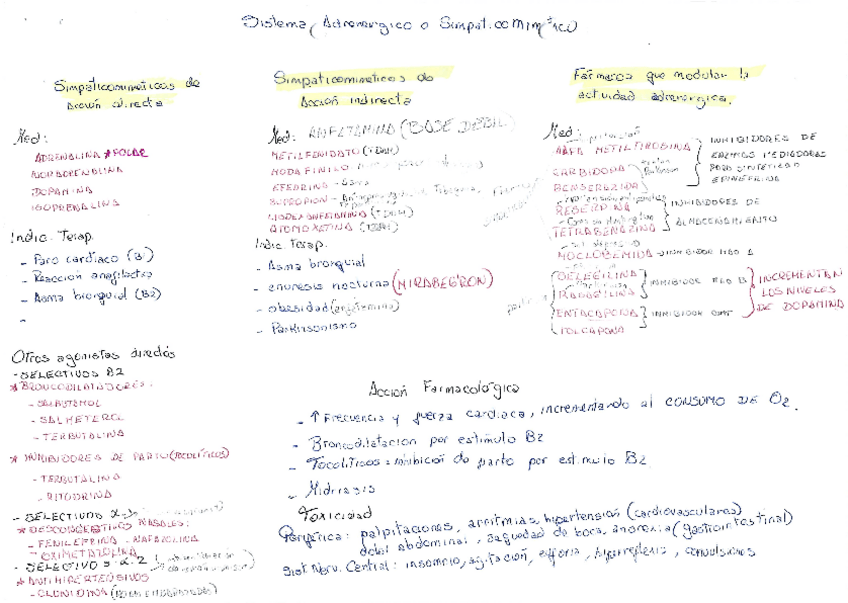 Sistema Adrenergico o Simpaticomimético
Simpaticomimeticos de
Acción directa
Med:
ADRENALINA * POLAR
NORADRENALINA
DOPAMINA
ISOPRENALINA
Indic. Terap.
- Paro cardiaco (B1)
- Reacción anafilactica
- Asma bronquial (B2)
-
Otros agonistas directos
- SELECTIVOS B2
* BRONCODILATADORES:
- SALBUTAMOL
- SALMETEROL
- TERBUTALINA
* INHIBIDORES DE PARTO (TOCOLITICOS)
- TERBUTALINA
- RITODRINA
- SELECTIVOS α
* DESCONGESTIVOS NASALES:
- FENILEFRINA - NAFAZOLINA
- OXIMETAZOLINA
- SELECTIVOS α-2
* ANTIHIPERTENSIVOS
- CLONIDINA
Simpaticomimeticos de
Acción indirecta
Med: ANFETAMINA (BASE DEBIL)
METILFENIDATO (TDAH)
MODAFINILO
EFEDRINA - asma
BUPROPION
LISDEXANFETAMINA (TDAH)
ATOMOXETINA (TDAH)
Indic. Terap.
- Asma bronquial
- enuresis nocturna (MIRABEGRON)
- obesidad (anfetamina)
- Parkinsonismo
Farmacos que modulan la
actividad adrenergica.
Med:
ALFA METILTIROSINA
CARBIDOPA
BENSERAZIDA
INHIBIDORES DE
ENZIMAS MEDIADORAS
PARA SINTETIZAR
EPINEFRINA
RESERPINA
TETRABENAZINA
INHIBIDORES DE
ALMACENAMIENTO
MOCLOBEMIDA - INHIBIDOR MAO A
SELEGILINA
RASAGILINA
INHIBIDOR MAO B
ENTACAPONA
TOLCAPONA
INHIBIDOR COMT
INCREMENTAN
LOS NIVELES
DE DOPAMINA
Acción Farmacológica
- ↑ Frecuencia y fuerza cardiaca, incrementando al CONSUMO DE O2.
- Broncodilatacion por estimulo B2
- Tocoliticos: inhibición de parto por estimulo B2
- Midriasis
Toxicidad
Periferica: palpitaciones, arritmias, hypertension (cardiovasculares)
dolor abdominal, sequedad de boca, anorexia (gastrointestinal)
Sist. Nerv. Central: insomnio, agitación, euforia, hyperreflexia, convulsiones